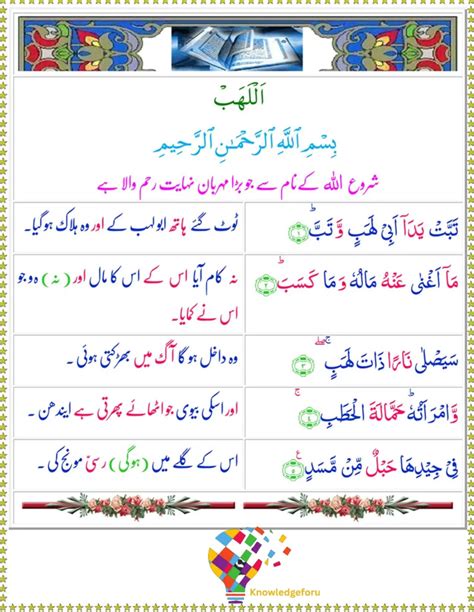 اَللَّهَبْ
بِسْمِ ٱللَّهِ ٱلرَّحْمَـٰنِ ٱلرَّحِيمِ
شروع اللہ کے نام سے جو بڑا مہربان نہایت رحم والا ہے
تَبَّتْ يَدَاۤ اَبِىْ لَهَبٍ وَّتَبَّؕ ﴿۱﴾
ٹوٹ گئے ہاتھ ابو لہب کے اور وہ ہلاک ہو گیا۔
مَاۤ اَغْنٰى عَنْهُ مَالُهٗ وَمَا كَسَبَؕ ﴿۲﴾
نہ کام آیا اس کے اس کا مال اور (نہ) وہ جو
اس نے کمایا۔
سَيَصْلٰى نَارًا ذَاتَ لَهَبٍ ۚۖ ﴿۳﴾
وہ داخل ہو گا آگ میں بھڑکتی ہوئی۔
وَّامْرَاَتُهٗؕ حَمَّالَةَ الْحَطَبِۚ ﴿۴﴾
اور اسکی بیوی جو اٹھائے پھرتی ہے ایندھن۔
فِىْ جِيْدِهَا حَبْلٌ مِّنْ مَّسَدٍ ﴿۵﴾
اس کے گلے میں (ہو گی) رسیّ مونج کی۔
Knowledgeforu